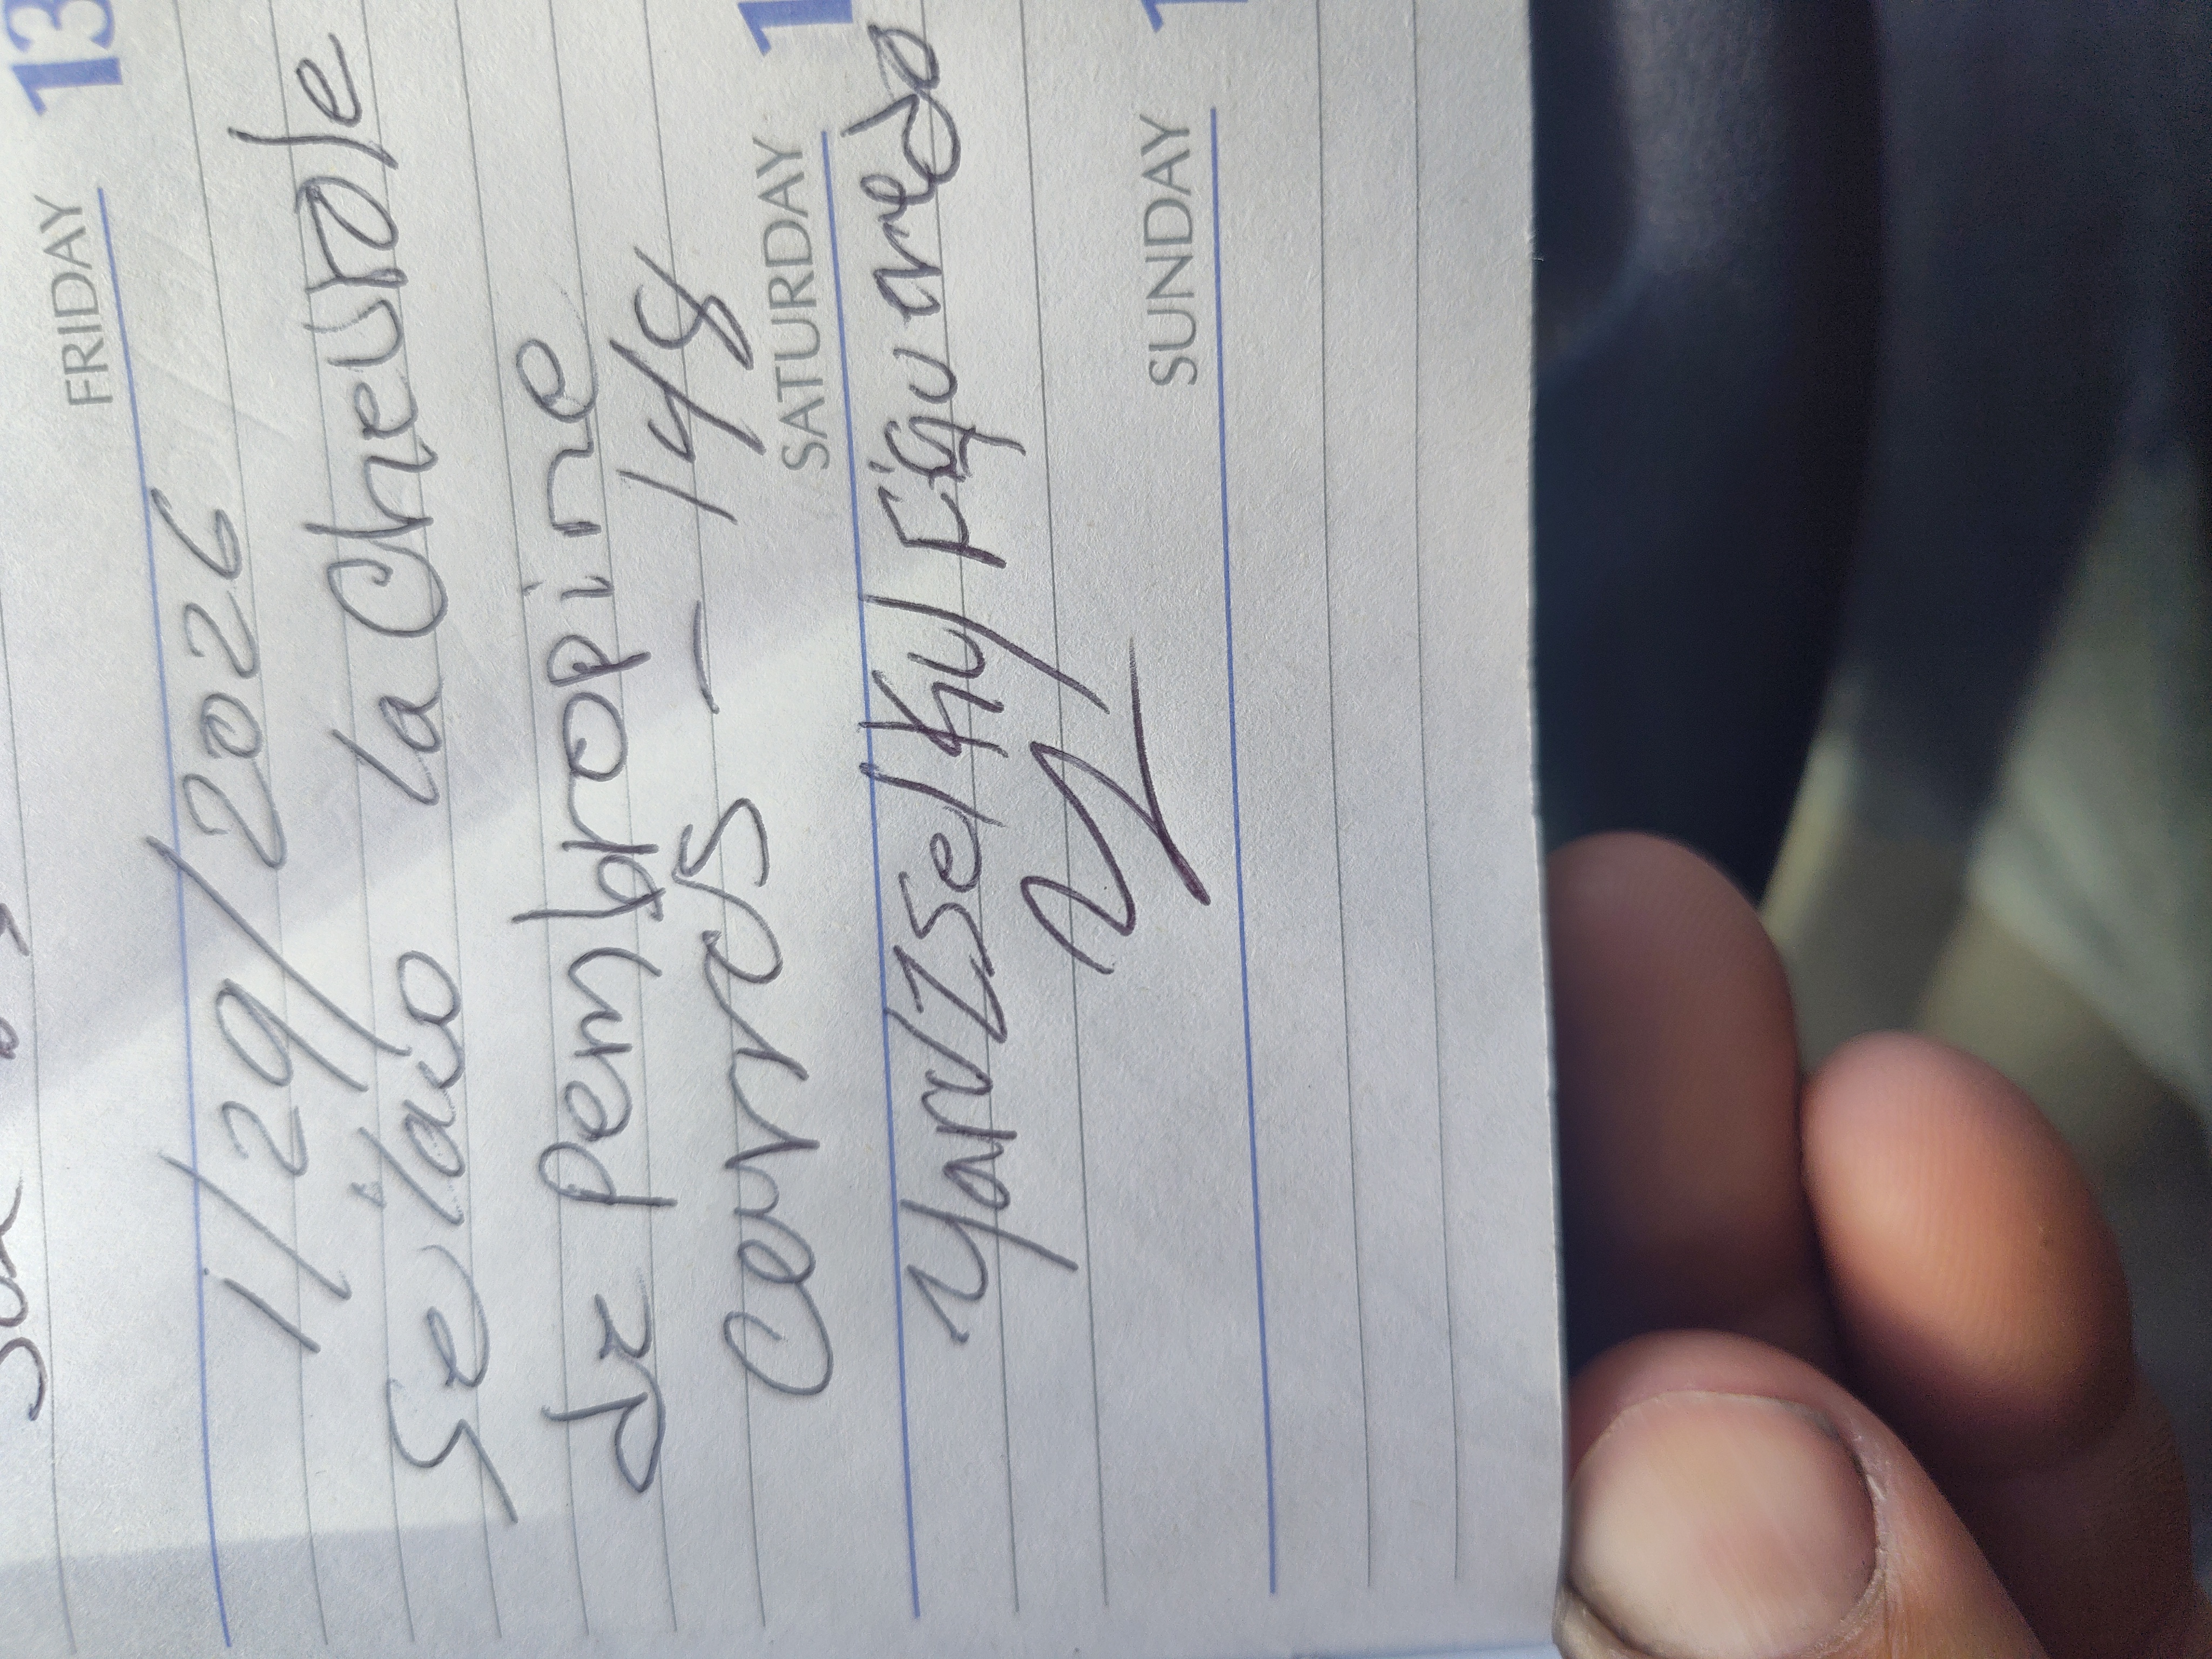 FRIDAY 13
1/29/2026
Se laio la Chevrole
de pembropine
cerres — 148
SATURDAY 1
Yan/Zselky Figueredo
SUNDAY 1